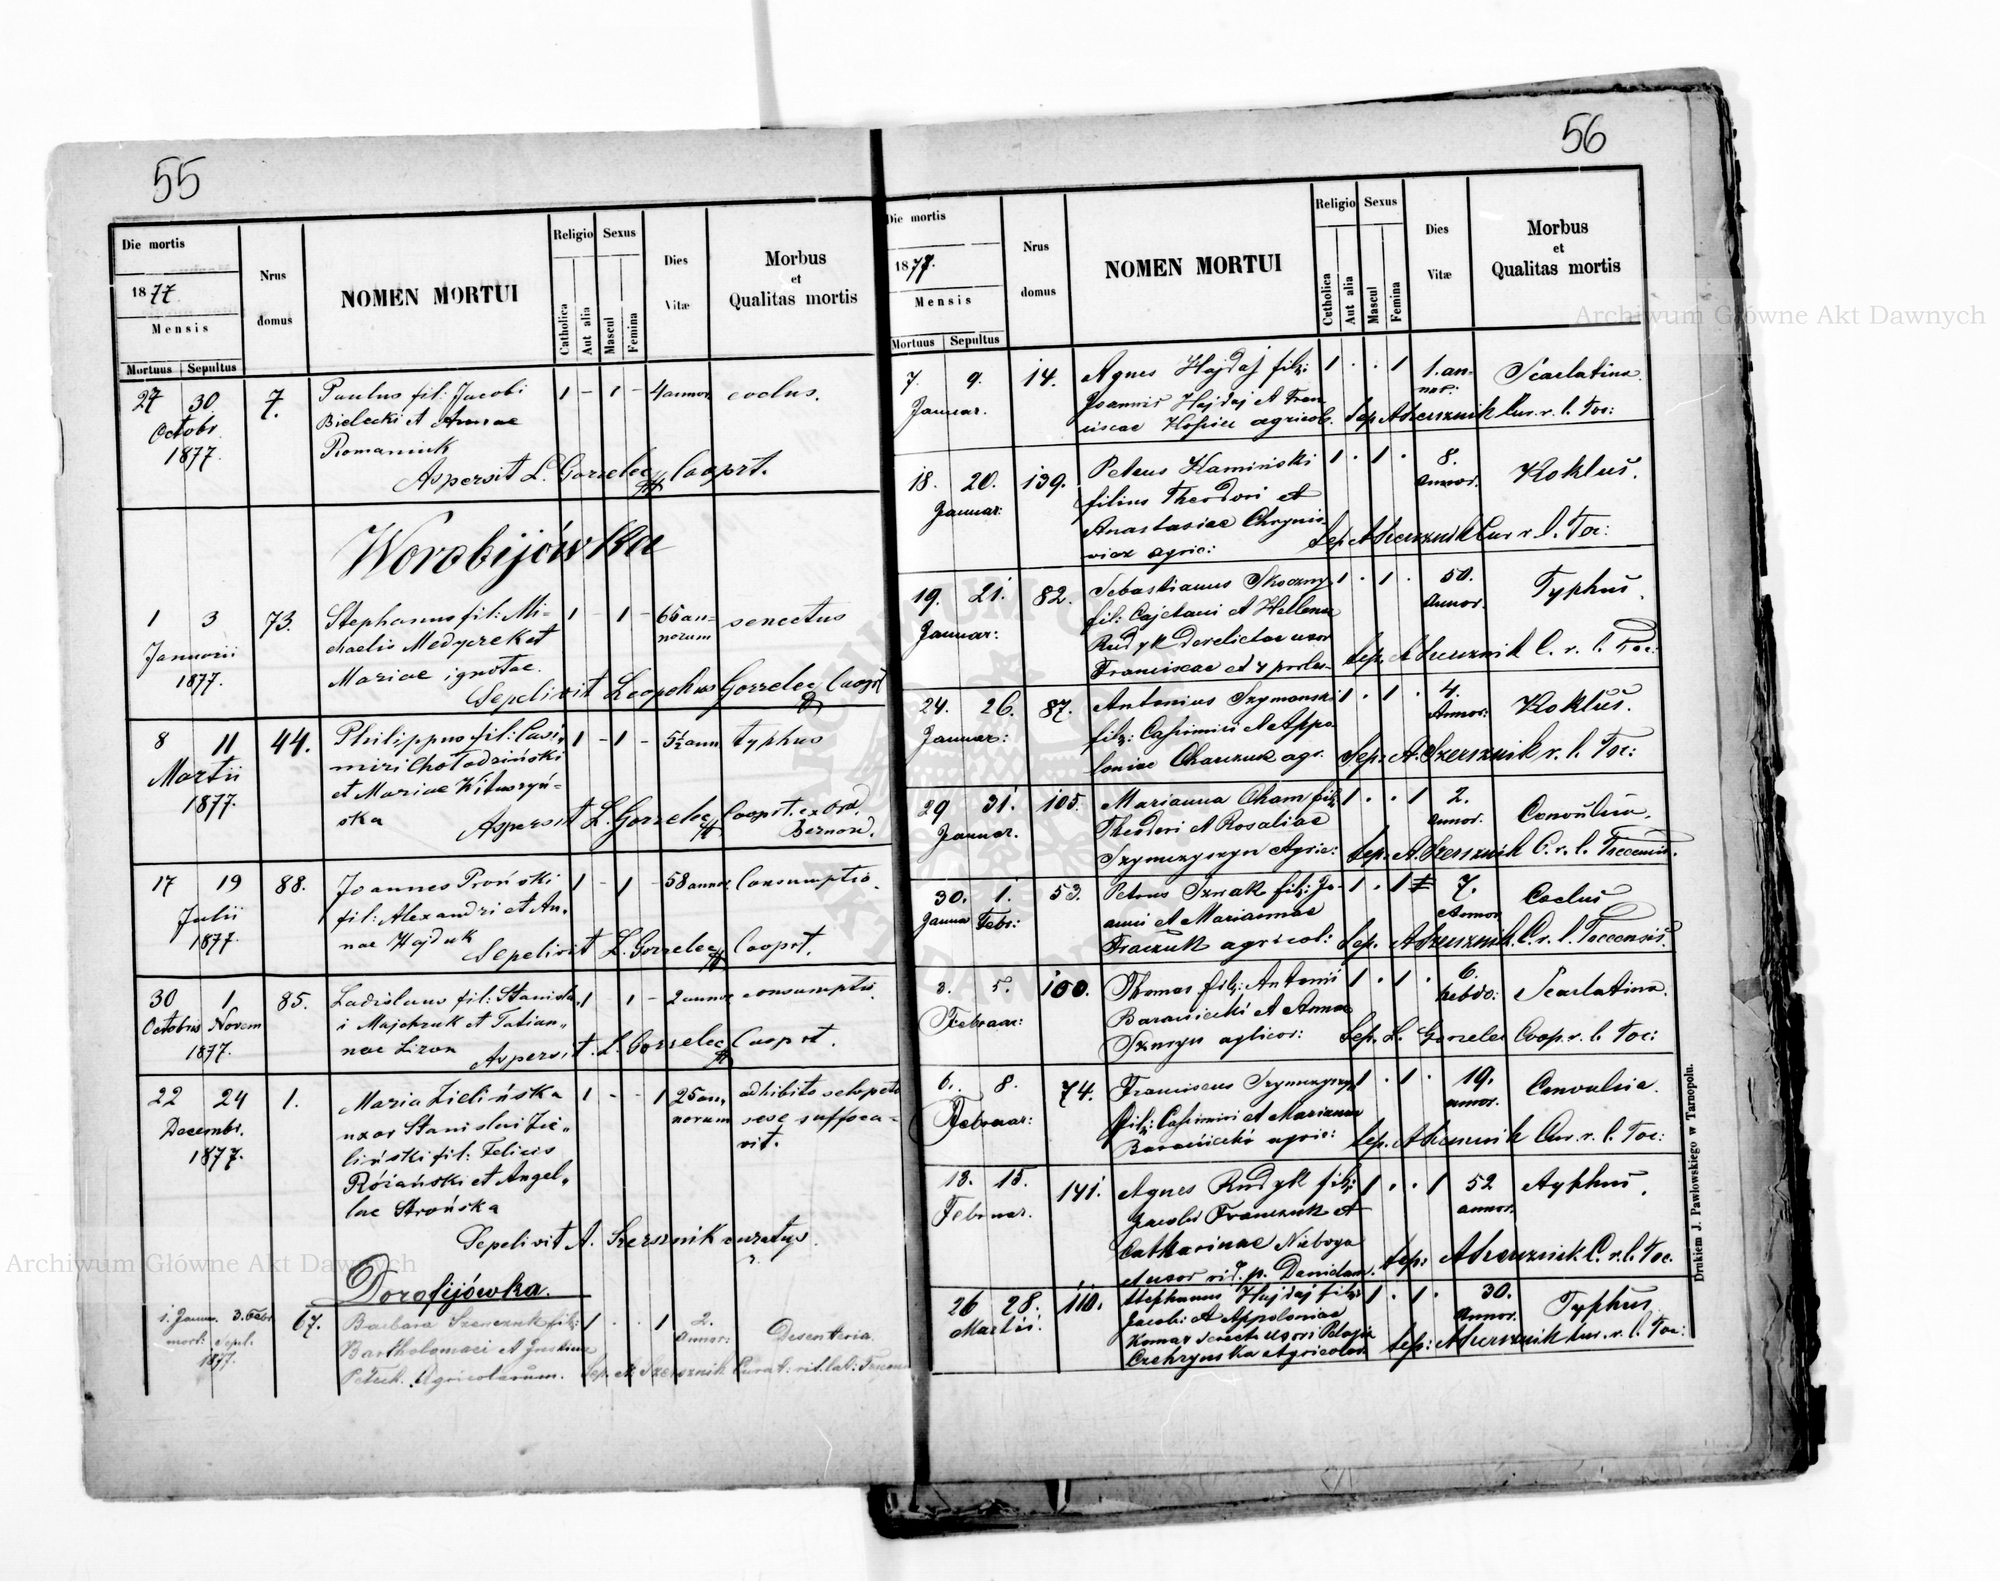 55
Die mortis
1877.
Mensis
Mortuus Sepultus
Nrus domus
NOMEN MORTUI
Religio
Catholica
Aut alia
Sexus
Mascul
Femina
Dies Vitæ
Morbus et Qualitas mortis
27 30 7. Paulus fil: Jacobi 1 - 1 - 4 annor. coclus.
Octobr. Bielecki et Annae
1877. Romaniuk
Aspersit L. Gorzelec Cooprt.
Worobijówka
1 3 73. Stephanus fil: Mi- 1 - 1 - 65 an- senectus
Januarii chaelis Medycrek et norum
1877. Mariae ignotae.
Sepelivit Leopoldus Gorzelec Cooprt
8 11 44. Philippus fil: Casi- 1 - 1 - 5½ ann typhus
Martii miri Chołodziński
1877. et Mariae Wituszyń-
ska Aspersit L. Gorzelec Cooprt. ex Ord.
Bernard.
17 19 88. Joannes Proński 1 - 1 - 58 annor Consumptio.
Julii fil: Alexandri et An-
1877. nae Hajduk Sepelivit L. Gorzelec Cooprt.
30 1 85. Ladislaus fil: Stanisla- 1 - 1 - 2 annor consumptio.
Octobris Novem i Majchruk et Tatian-
1877. nae Liron Aspersit L. Gorzelec Cooprt.
22 24 1. Maria Zielińska 1 - - 1 25 an- adhibito sclopeto
Decembr. uxor Stanislai Zie- norum sese suffoca-
1877. liński fil: Felicis vit.
Różański et Angel-
lae Strońska
Sepelivit A. Szersznik curatus
Dorofijówka.
1. Januar. 3. 67. Barbara fil: 1 . . 1 2. Desenteria
mort: Sepul: Bartholomaei et Annor:
1877. Agricolarum. Sep. A. Szersznik Curat: rit. lat:
56
Die mortis
1877.
Mensis
Mortuus Sepultus
Nrus domus
NOMEN MORTUI
Religio
Catholica
Aut alia
Sexus
Mascul
Femina
Dies Vitæ
Morbus et Qualitas mortis
7. 9. 14. Agnes Hajdaj fil: 1 . . 1 1. an- Scarlatina.
Januar. Joannis Hajdaj et Fran- nor.
ciscae agricol. Sep. A Szersznik Cur. r. l. Toc:
18. 20. 139. Petrus Kamiński 1 . 1 . 8. Kokluš.
Januar: filius Theodori et annor.
Anastasiae
agric: Sep. A Szersznik Cur r. l. Toc:
19. 21. 82. Sebastianus Skoczny 1 . 1 . 50. Typhus.
Januar: fil: Cajetani et Hellenae Annor.
Rudyk derelictae uxor
Franciscae et 4 Sep. A Szersznik C. r. l. Toc:
24. 26. 87. Antonius Szymanski 1 . 1 . 4. Kokluš.
Januar: fil: Casimiri et Appo- Annor:
loniae agr. Sep: A. Szersznik r. l. Toc:
29 31. 105. Marianna Cham fil: 1 . . 1 2. Convulsia.
Januar. Theodori et Rosaliae annor.
Agric: Sep: A. Szersznik C. r. l.
30. 1. 53. Petrus fil: Jo- 1 . 1 7. Coclus
Janua Febr: anni et Mariannae Annor
Fraczuk agricol: Sep. A Szersznik. C. r. l. Toccensis.
3. 5. 100. Thomas fil: Antonii 1 . 1 . 6. Scarlatina.
Februar: Baranicki et Annae hebdo:
Sep. L. Gorzelec Coop. r. l. Toc:
6. 8. 74. Franciscus 1 . 1 . 19. Convulsia.
Februar: fil: Casimiri et Marianna annor.
agric: Sep. A Szersznik Cur. r. l. Toc:
13. 15. 141. Agnes Rudyk fil: 1 . . 1 52 Typhus.
Februar. Jacobi Franczuk et annor.
Catharinae Nieboga
et uxor Sep: A Szersznik C. r. l. Toc.
26 28. 110. Stephanus Hajdaj fil: 1 . 1 . 30. Typhus
Martii. Jacobi et Appoloniae Annor.
Komar uxori Pelagia
Agricolar. Sep: A Szersznik Cur. r. l. Toc:
Drukiem J. Pawłowskiego w Tarnopolu.
Archiwum Główne Akt Dawnych
Archiwum Główne Akt Dawnych